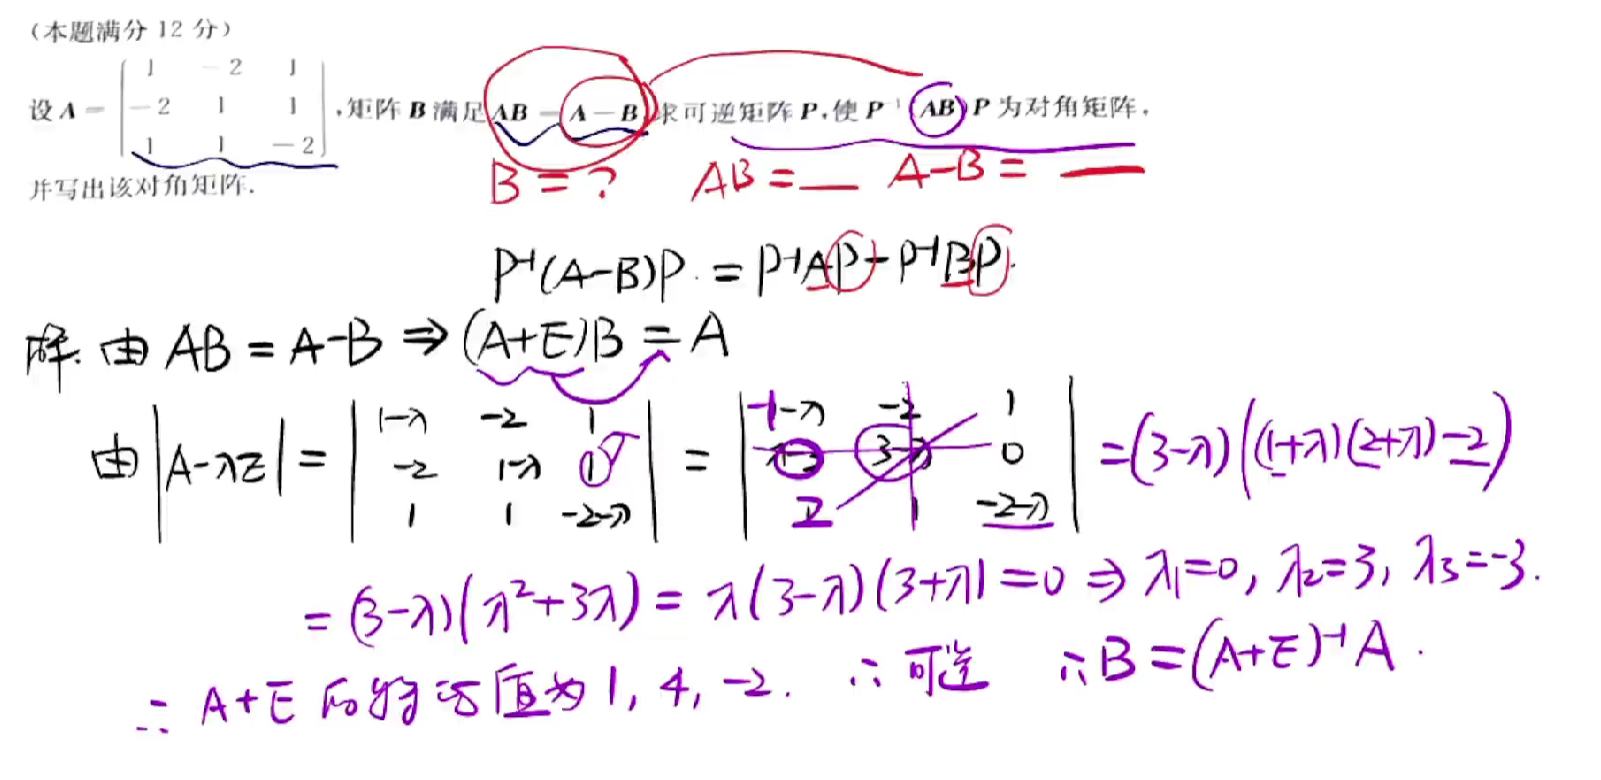 (本题满分 12 分)
设 A = ( 1 -2 1
-2 1 1
1 1 -2 ) ,矩阵 B 满足 AB = A - B 求可逆矩阵 P,使 P⁻¹(AB)P 为对角矩阵,
并写出该对角矩阵.
B = ? AB = __ A-B = __
P⁻¹(A-B)P = P⁻¹AP - P⁻¹BP.
解. 由 AB = A-B ⇒ (A+E)B = A
由 |A-λE| = | 1-λ -2 1 | = | -1-λ -2 1 | = (3-λ)((1+λ)(2+λ)-2)
| -2 1-λ 1 | | 3-λ 0 |
| 1 1 -2-λ | | 2 1 -2-λ |
= (3-λ)(λ²+3λ) = λ(3-λ)(3+λ) = 0 ⇒ λ1=0, λ2=3, λ3=-3.
∴ A+E 的特征值为 1, 4, -2. ∴ 可逆 ∴ B = (A+E)⁻¹A .